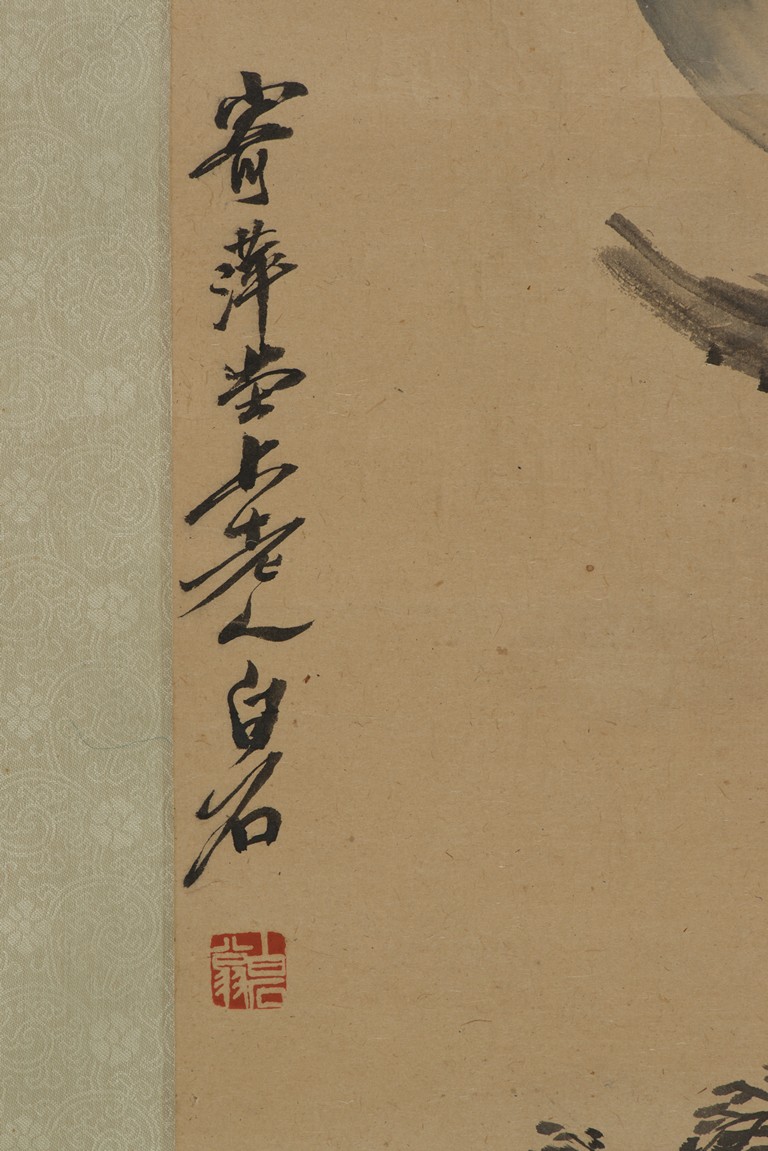 寄萍堂上老人白石
白石翁